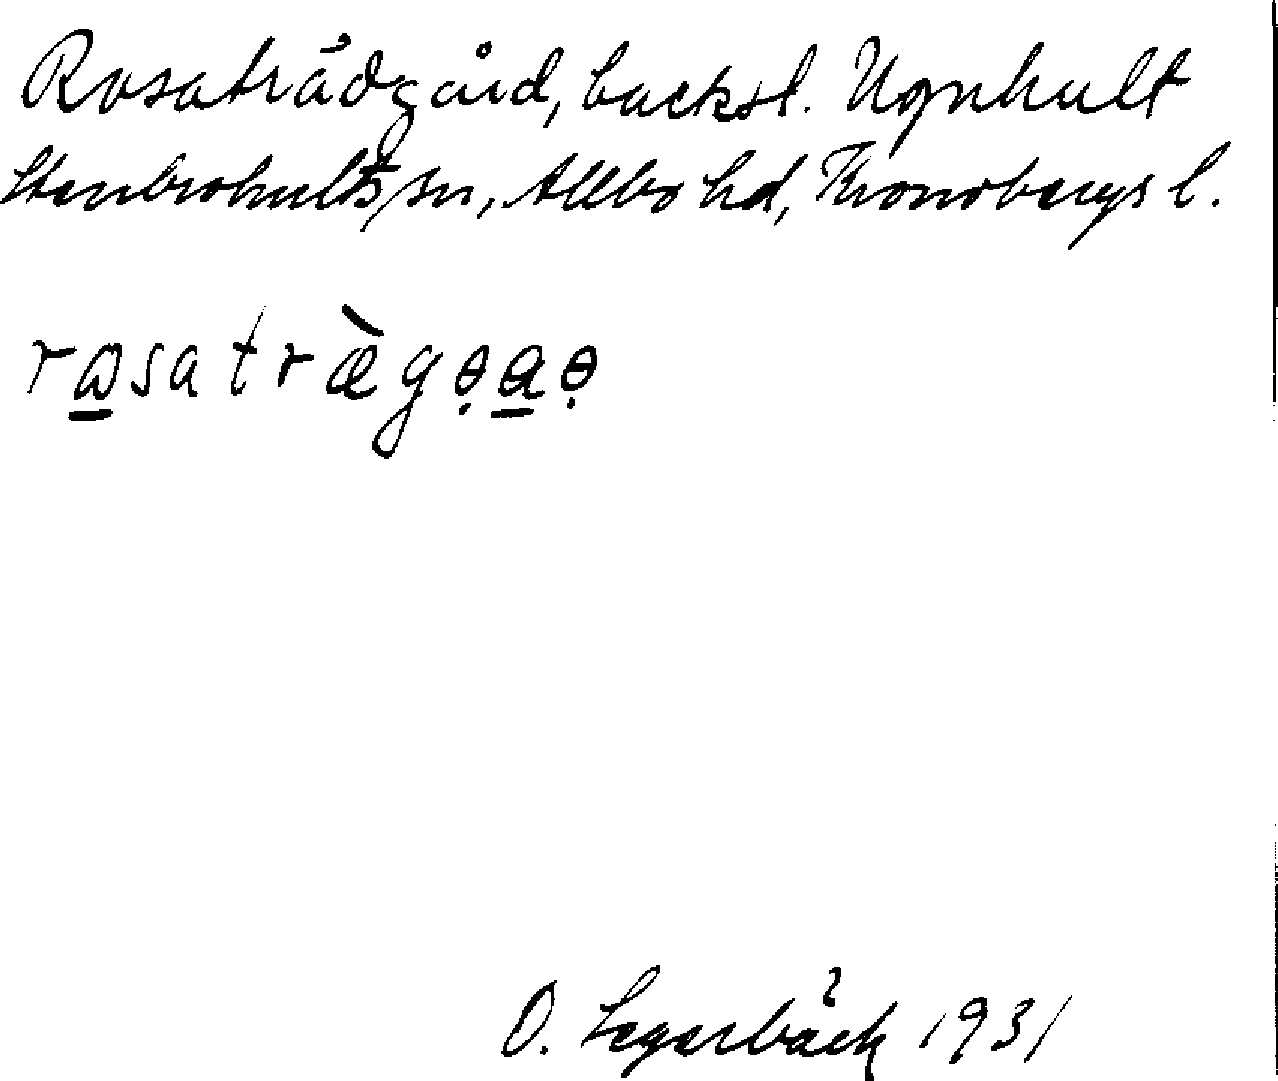 Rosaträdgård, backst. Ugnhult
Stenbrohults sn, Allbo hd, Kronobergs l.
rɷsatræ̀gɵ̣a̱ɵ̣
O. Lagerbäck 1931